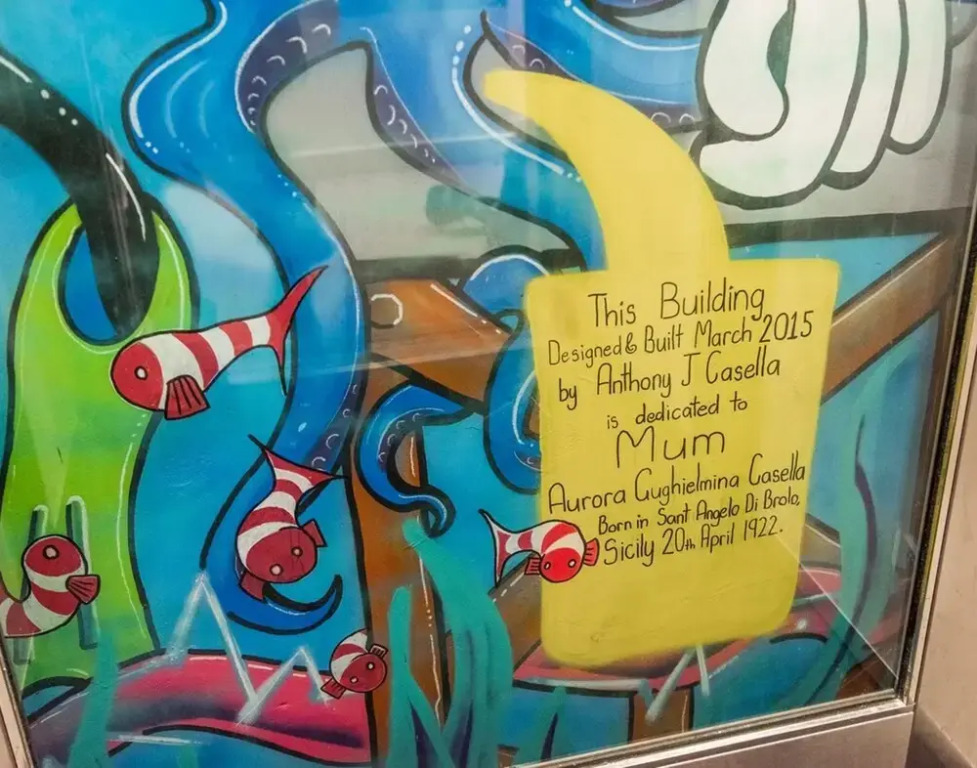 This Building
Designed & Built March 2015
by Anthony J Casella
is dedicated to
Mum
Aurora Gughielmina Casella
Born in Sant Angelo Di Brolo,
Sicily 20th April 1922.